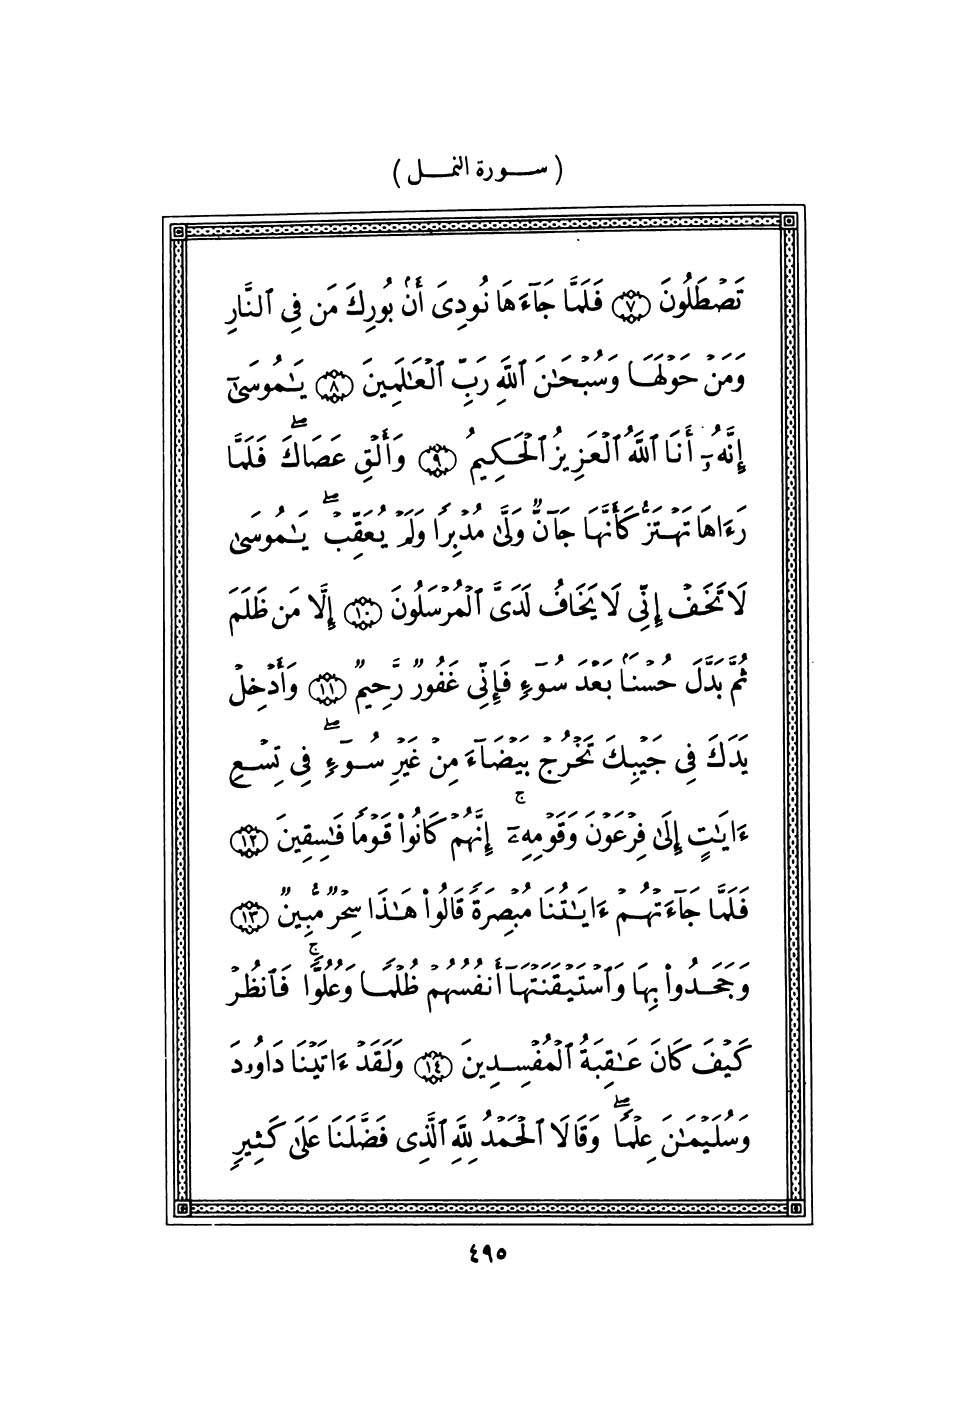 ( سورة النمل )
تَصْطَلُونَ ﴿٧﴾ فَلَمَّا جَآءَهَا نُودِىَ أَنۢ بُورِكَ مَن فِى ٱلنَّارِ
وَمَنْ حَوْلَهَا وَسُبْحَـٰنَ ٱللَّهِ رَبِّ ٱلْعَـٰلَمِينَ ﴿٨﴾ يَـٰمُوسَىٰٓ
إِنَّهُۥٓ أَنَا ٱللَّهُ ٱلْعَزِيزُ ٱلْحَكِيمُ ﴿٩﴾ وَأَلْقِ عَصَاكَ ۖ فَلَمَّا
رَءَاهَا تَهْتَزُّ كَأَنَّهَا جَآنٌّ وَلَّىٰ مُدْبِرًا وَلَمْ يُعَقِّبْ ۖ يَـٰمُوسَىٰ
لَا تَخَفْ إِنِّى لَا يَخَافُ لَدَىَّ ٱلْمُرْسَلُونَ ﴿١٠﴾ إِلَّا مَن ظَلَمَ
ثُمَّ بَدَّلَ حُسْنًۢا بَعْدَ سُوٓءٍ فَإِنِّى غَفُورٌ رَّحِيمٌ ﴿١١﴾ وَأَدْخِلْ
يَدَكَ فِى جَيْبِكَ تَخْرُجْ بَيْضَآءَ مِنْ غَيْرِ سُوٓءٍ ۖ فِى تِسْعِ
ءَايَـٰتٍ إِلَىٰ فِرْعَوْنَ وَقَوْمِهِۦٓ ۚ إِنَّهُمْ كَانُوا۟ قَوْمًا فَـٰسِقِينَ ﴿١٢﴾
فَلَمَّا جَآءَتْهُمْ ءَايَـٰتُنَا مُبْصِرَةً قَالُوا۟ هَـٰذَا سِحْرٌ مُّبِينٌ ﴿١٣﴾
وَجَحَدُوا۟ بِهَا وَٱسْتَيْقَنَتْهَآ أَنفُسُهُمْ ظُلْمًا وَعُلُوًّا ۚ فَٱنظُرْ
كَيْفَ كَانَ عَـٰقِبَةُ ٱلْمُفْسِدِينَ ﴿١٤﴾ وَلَقَدْ ءَاتَيْنَا دَاوُۥدَ
وَسُلَيْمَـٰنَ عِلْمًا ۖ وَقَالَا ٱلْحَمْدُ لِلَّهِ ٱلَّذِى فَضَّلَنَا عَلَىٰ كَثِيرٍ
٤٩٥